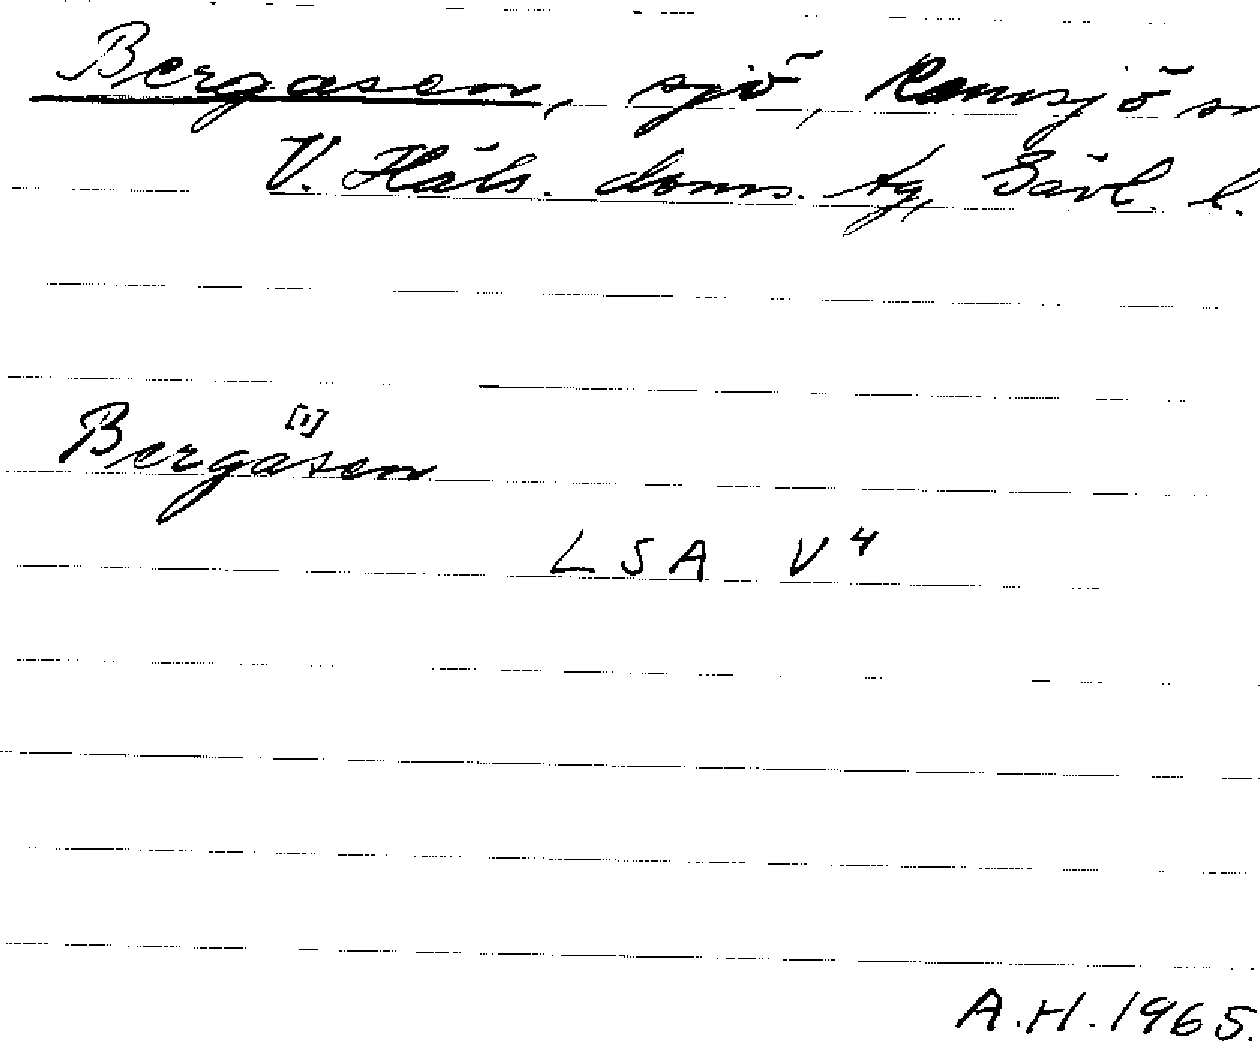 Bergasen, sjö, Ramsjö sn
V. Häls. doms. tg, Gävl. l.
[1]
Bergåsen
LSA V4
A.H. 1965.